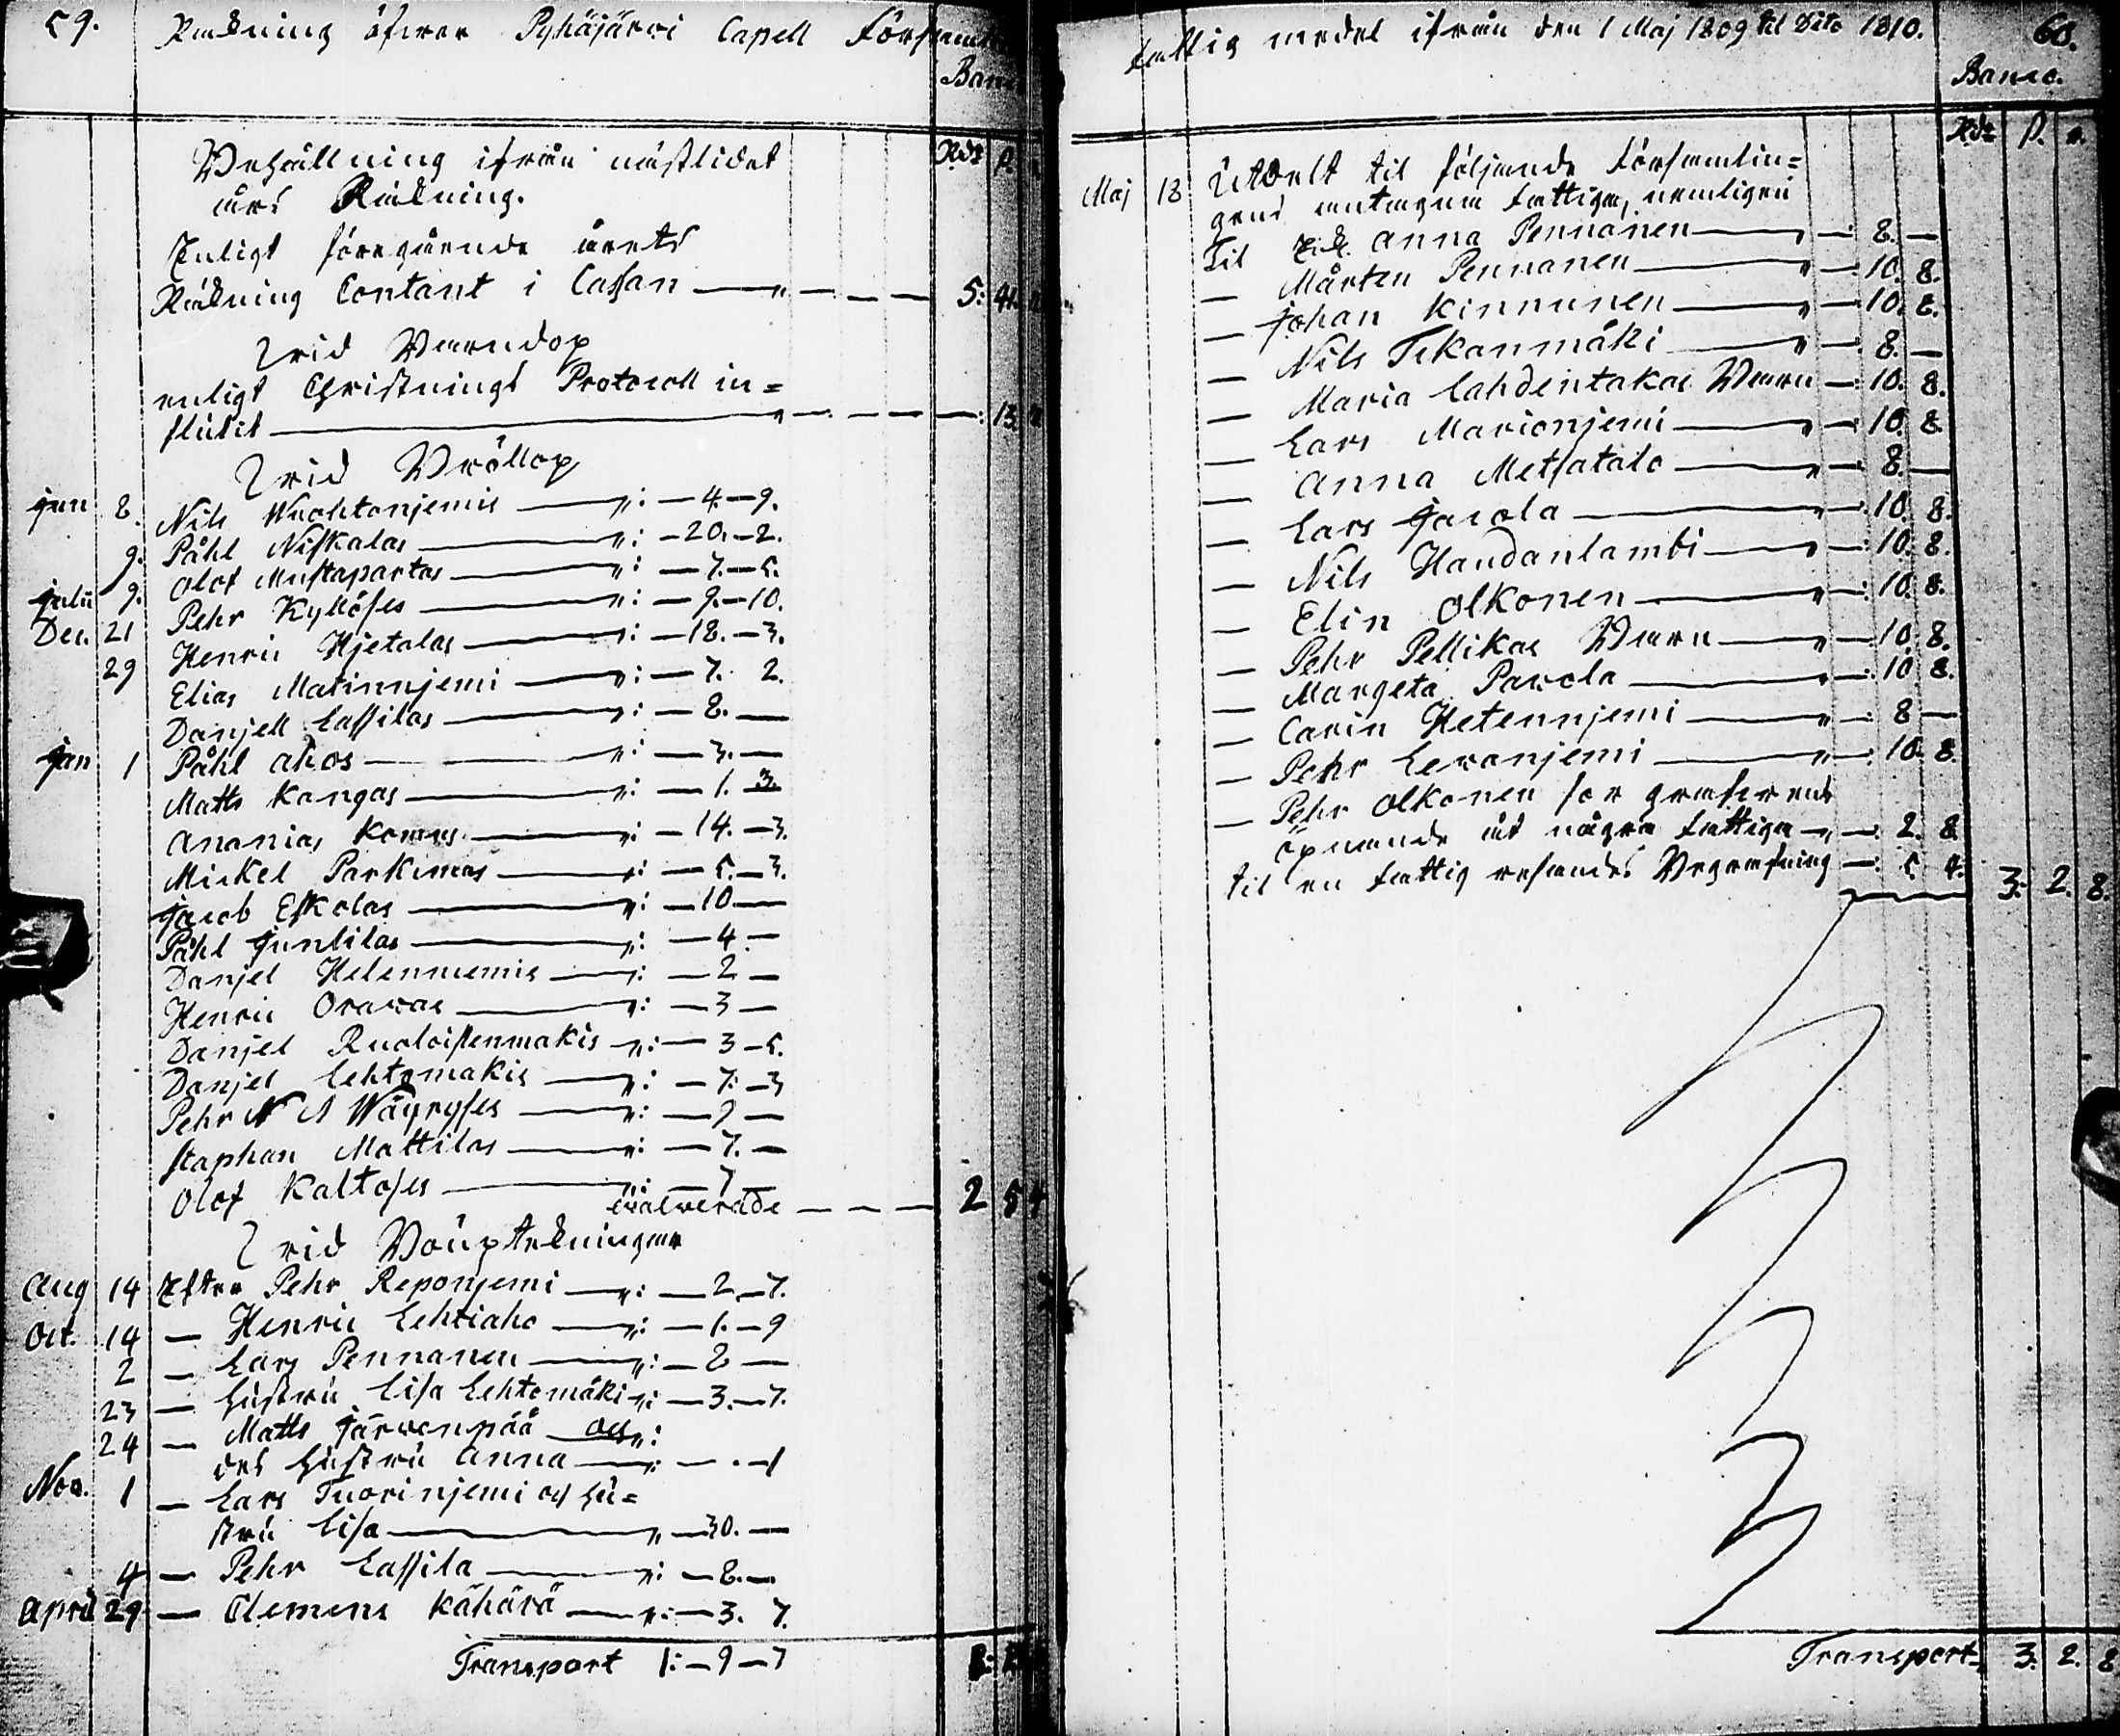 59.
Räkning öfwer Pyhäjärwi Capell Församl
Banc
Behållning ifrån nästlidet
Rdr ß.
års Räkning.
Enligt föregående årets
Räkning Contant i Cassan — „ — — — 5: 41.
Wid Barndop
enligt Christnings Protocoll in=
flutit — „ — — — —: 13
Wid Bröllop
Jun 8. Nils Wuohtonjemis — „: — 4. — 9.
9. Påhl Niskalas — „: — 20. — 2.
Olof Mustapartas — „: — 7. — 5.
Julii 9. Pehr Kyllöses — „: — 9. — 10.
Dec. 21 Henric Hjetalas — „: — 18. — 3.
29 Elias Matinnjemi — „: — 7. 2.
Danjell Lassilas — „: — 8. —
Jan 1 Påhl Ahos — „: — 3. —
Matts Kangas — „: — 1. 3.
Ananias Komus — „: — 14. — 3.
Mickel Parkimas — „: — 5. — 3.
Jacob Eskolas — „: — 10 —
Påhl Juntilas — „: — 4. —
Danjel Helenniemis — „: — 2 —
Henric Orawas — „: — 3 —
Danjel Ruoloistenmakis „: — 3 — 5.
Danjel Lehtomakis — „: — 7: — 3
Pehr Wäyryses — „: — 9 —
Staphan Mattilas — „: — 7. —
Olof Kaltoses — „: — 7 —
— — — 2 5 4
Wid Bouptekningar
Aug 14 Efter Pehr Reponjemi — „: — 2. — 7.
Oct. 14 — Henric Lehtiaho — „: — 1. — 9
2 — Lars Pennanen — „: — 2 —
23 — hustru Lisa Lehtomäki „: — 3. — 7.
24 — Matts Järwenpää och „:
des hustru Anna — „: — . — 1
Nov. 1 — Lars Tuorinjemi och hu=
stru Lisa — „ — 30. —
4 — Pehr Lassila — „: — 8. —
April 29 — Clemens Kähärä — „: — 3. 7.
Transport 1: — 9 — 7
fattig medel ifrån den 1 Maj 1809 til Dito 1810.
60.
Banco.
Rdr ß. r.
Maj 18 Utdelt til följande församlin=
gens antagna fattiga, nemligen
Til Enk. Anna Pennanen — „ —: 8. —
— Mårten Pennanen — „ —: 10. 8.
— Johan Kinnunen — „ —: 10. 8.
— Nils Tikanmäki — „ —: 8. —
— Maria Lahdentakas Barn —: 10. 8.
— Lars Marionjemi — „ —: 10. 8.
— Anna Metsatalo — „ —: 8. —
— Lars Jacola — „ —: 10. 8.
— Nils Haudanlambi — „ —: 10. 8.
— Elin Olkonen — „ —: 10. 8.
— Pehr Pellikas Barn — „ —: 10. 8.
— Margeta Parola — „ —: 10 8.
— Carin Hetennjemi — „ —: 8 —
— Pehr Lewanjemi — „ —: 10. 8.
— Pehr Olkonen för grafwens
öpnande åt några fattiga — „ —: 2. 8.
til en fattig resandes Begrafning —: 5 4. 3: 2. 8.
Transport 3: 2. 8